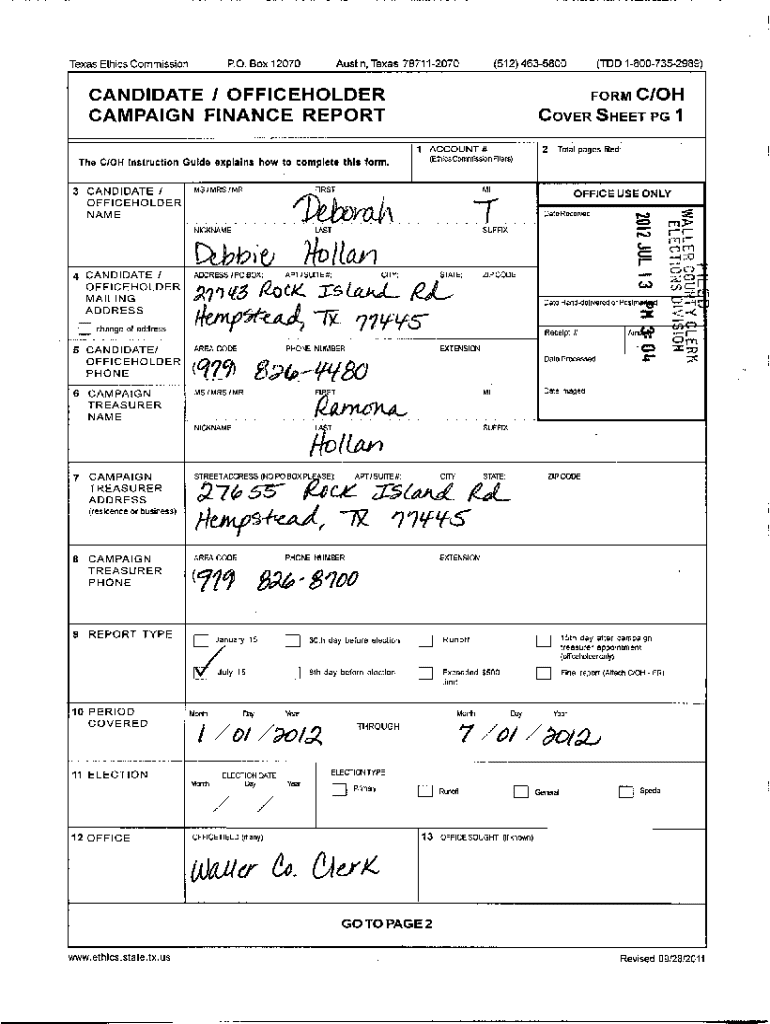 Texas Ethics Commission P.O. Box 12070 Austin, Texas 78711-2070 (512) 463-5800 (TDD 1-800-735-2989)
CANDIDATE / OFFICEHOLDER
CAMPAIGN FINANCE REPORT
FORM C/OH
COVER SHEET PG 1
The C/OH Instruction Guide explains how to complete this form.
1 ACCOUNT #
(Ethics Commission Filers)
2 Total pages filed:
3 CANDIDATE / OFFICEHOLDER NAME
MS / MRS / MR FIRST MI
Deborah T
NICKNAME LAST SUFFIX
Debbie Hollan
OFFICE USE ONLY
Date Received
FILED
WALLER COUNTY CLERK
ELECTIONS DIVISION
2012 JUL 13 PM 3:04
Date Hand-delivered or Postmarked
Receipt #
Date Processed
Date Imaged
4 CANDIDATE / OFFICEHOLDER MAILING ADDRESS
change of address
ADDRESS / PO BOX; APT / SUITE #; CITY; STATE; ZIP CODE
27743 Rock Island Rd
Hempstead, TX 77445
5 CANDIDATE/ OFFICEHOLDER PHONE
AREA CODE PHONE NUMBER EXTENSION
(979) 826-4480
6 CAMPAIGN TREASURER NAME
MS / MRS / MR FIRST MI
Ramona
NICKNAME LAST SUFFIX
Hollan
7 CAMPAIGN TREASURER ADDRESS
(residence or business)
STREET ADDRESS (NO PO BOX PLEASE); APT / SUITE #; CITY STATE; ZIP CODE
27655 Rock Island Rd
Hempstead, TX 77445
8 CAMPAIGN TREASURER PHONE
AREA CODE PHONE NUMBER EXTENSION
(979 826-8700
9 REPORT TYPE
January 15 30th day before election Runoff 15th day after campaign treasurer appointment (officeholder only)
July 15 8th day before election Exceeded $500 limit Final report (Attach C/OH - FR)
10 PERIOD COVERED
Month Day Year THROUGH Month Day Year
1 / 01 / 2012 7 / 01 / 2012
11 ELECTION
ELECTION DATE
Month Day Year
/ /
ELECTION TYPE
Primary Runoff General Special
12 OFFICE
OFFICE HELD (if any)
Waller Co. Clerk
13 OFFICE SOUGHT (if known)
GO TO PAGE 2
www.ethics.state.tx.us Revised 09/28/2011